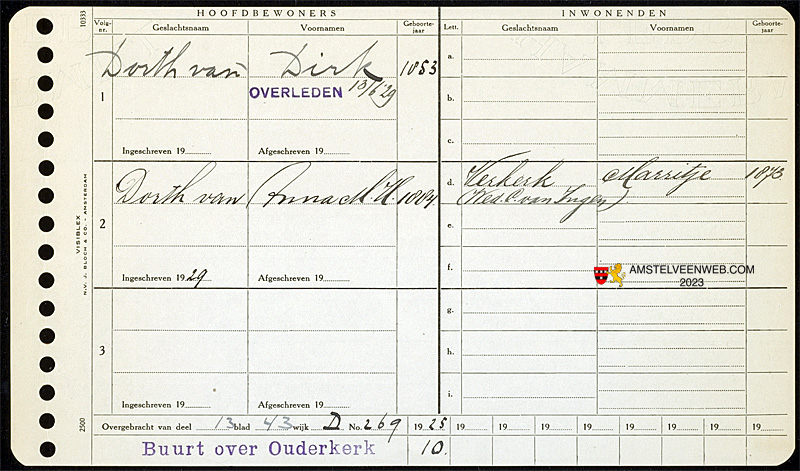 HOOFDBEWONERS
INWONENDEN
Volg-nr.
Geslachtsnaam
Voornamen
Geboorte-jaar
Lett.
Geslachtsnaam
Voornamen
Geboorte-jaar
10333
1
Dorth van
Dirk
1853
OVERLEDEN 13/6 '29
Ingeschreven 19
Afgeschreven 19
a.
b.
c.
2
Dorth van
Anna M. H.
1884.
Ingeschreven 1929
Afgeschreven 19
d. Verkerk
Marritje
1873
(Wed. C. van Ingen)
e.
f.
AMSTELVEENWEB.COM
2023
VISIBLEX
N.V. J. BLOCH & CO. - AMSTERDAM
3
Ingeschreven 19
Afgeschreven 19
g.
h.
i.
2500
Overgebracht van deel 13 blad 43 wijk D No. 269 1925 19 19 19 19 19 19 19 19
Buurt over Ouderkerk
10.